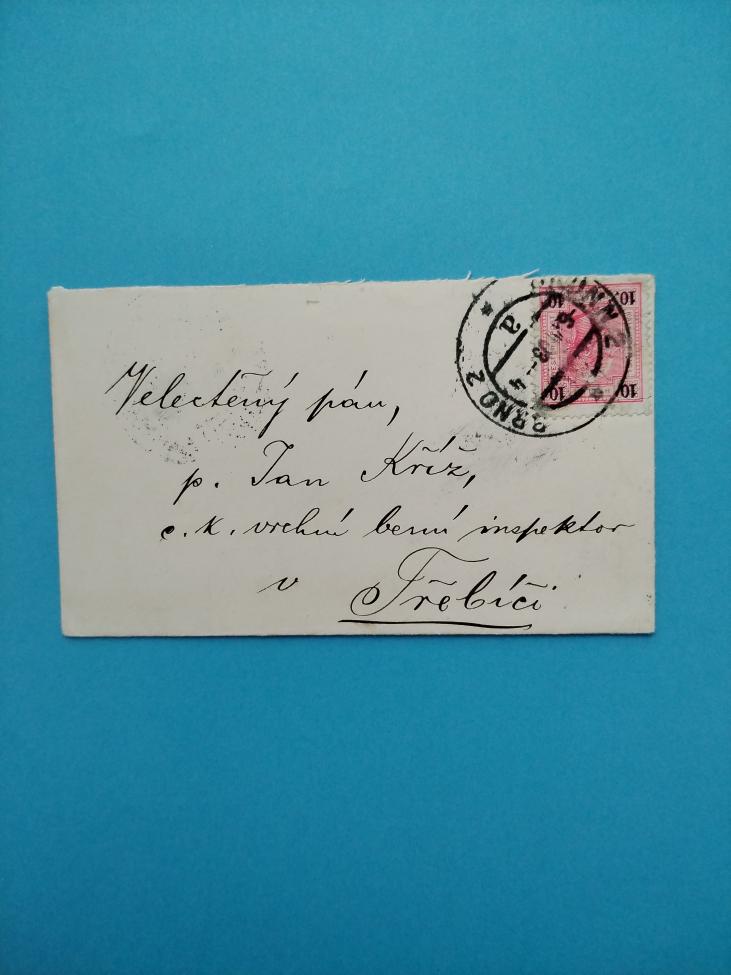 Velectěný pán,
p. Jan Kříž,
c. k. vrchní berní inspektor
v Třebíči
BRÜNN 2
BRNO 2
10 10
10 10